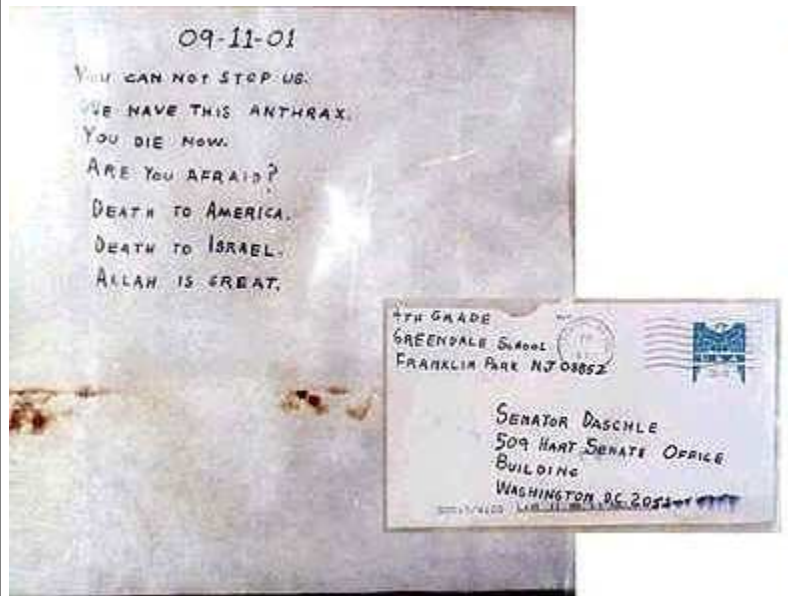 09-11-01
YOU CAN NOT STOP US.
WE HAVE THIS ANTHRAX.
YOU DIE NOW.
ARE YOU AFRAID?
DEATH TO AMERICA.
DEATH TO ISRAEL.
ALLAH IS GREAT.
4TH GRADE
GREENDALE SCHOOL
FRANKLIN PARK NJ 08852
SENATOR DASCHLE
509 HART SENATE OFFICE
BUILDING
WASHINGTON D.C. 205